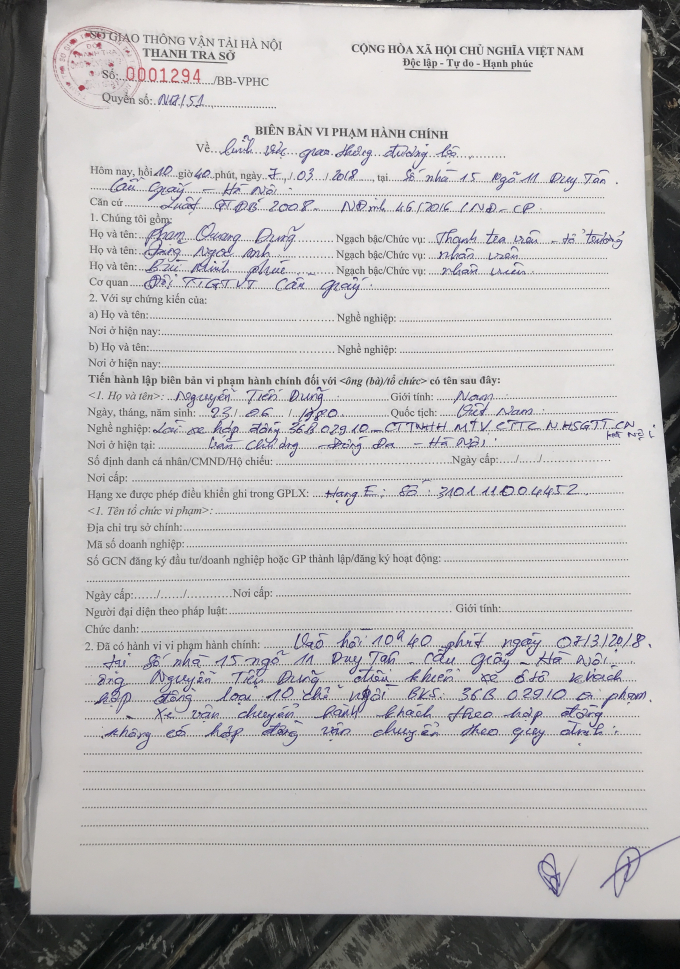 SỞ GIAO THÔNG VẬN TẢI HÀ NỘI
THANH TRA SỞ
Số: 0001294 /BB-VPHC
Quyển số:
CỘNG HÒA XÃ HỘI CHỦ NGHĨA VIỆT NAM
Độc lập - Tự do - Hạnh phúc
BIÊN BẢN VI PHẠM HÀNH CHÍNH
Về lĩnh vực giao thông đường bộ
Hôm nay, hồi 10 giờ 40 phút, ngày 7 / 03 / 2018, tại Số nhà 15 Ngõ 11 Duy Tân
Cầu Giấy - Hà Nội
Căn cứ Luật GTĐB 2008 - NĐịnh 46/2016/NĐ-CP
1. Chúng tôi gồm:
Họ và tên: Phạm Quang Dũng Ngạch bậc/Chức vụ: Thanh tra viên - tổ trưởng
Họ và tên: Ngọc Anh Ngạch bậc/Chức vụ: nhân viên
Họ và tên: Bùi Minh Phúc Ngạch bậc/Chức vụ: nhân viên
Cơ quan Đội TTGTVT Cầu Giấy
2. Với sự chứng kiến của:
a) Họ và tên: Nghề nghiệp:
Nơi ở hiện nay:
b) Họ và tên: Nghề nghiệp:
Nơi ở hiện nay:
Tiến hành lập biên bản vi phạm hành chính đối với <ông (bà)/tổ chức> có tên sau đây:
<1. Họ và tên>: Nguyễn Tiến Dũng Giới tính: Nam
Ngày, tháng, năm sinh: 23 / 06 / 1980 Quốc tịch: Việt Nam
Nghề nghiệp: Lái xe hợp đồng 36B 02910 - CTTNHH MTV CTTC NHSGTT CN Hà Nội
Nơi ở hiện tại: Văn Chương - Đống Đa - Hà Nội
Số định danh cá nhân/CMND/Hộ chiếu: Ngày cấp:....../....../......
Nơi cấp:
Hạng xe được phép điều khiển ghi trong GPLX: Hạng E; Số: 310111004452
<1. Tên tổ chức vi phạm>:
Địa chỉ trụ sở chính:
Mã số doanh nghiệp:
Số GCN đăng ký đầu tư/doanh nghiệp hoặc GP thành lập/đăng ký hoạt động:
Ngày cấp:....../....../...... Nơi cấp:
Người đại diện theo pháp luật: Giới tính:
Chức danh:
2. Đã có hành vi vi phạm hành chính: Vào hồi 10h40 phút ngày 07/3/2018.
tại số nhà 15 ngõ 11 Duy Tân - Cầu Giấy - Hà Nội
ông Nguyễn Tiến Dũng điều khiển xe ô tô khách
hợp đồng loại 10 chỗ ngồi BKS. 36B 02910 vi phạm.
- Xe vận chuyển hành khách theo hợp đồng
không có hợp đồng vận chuyển theo quy định.